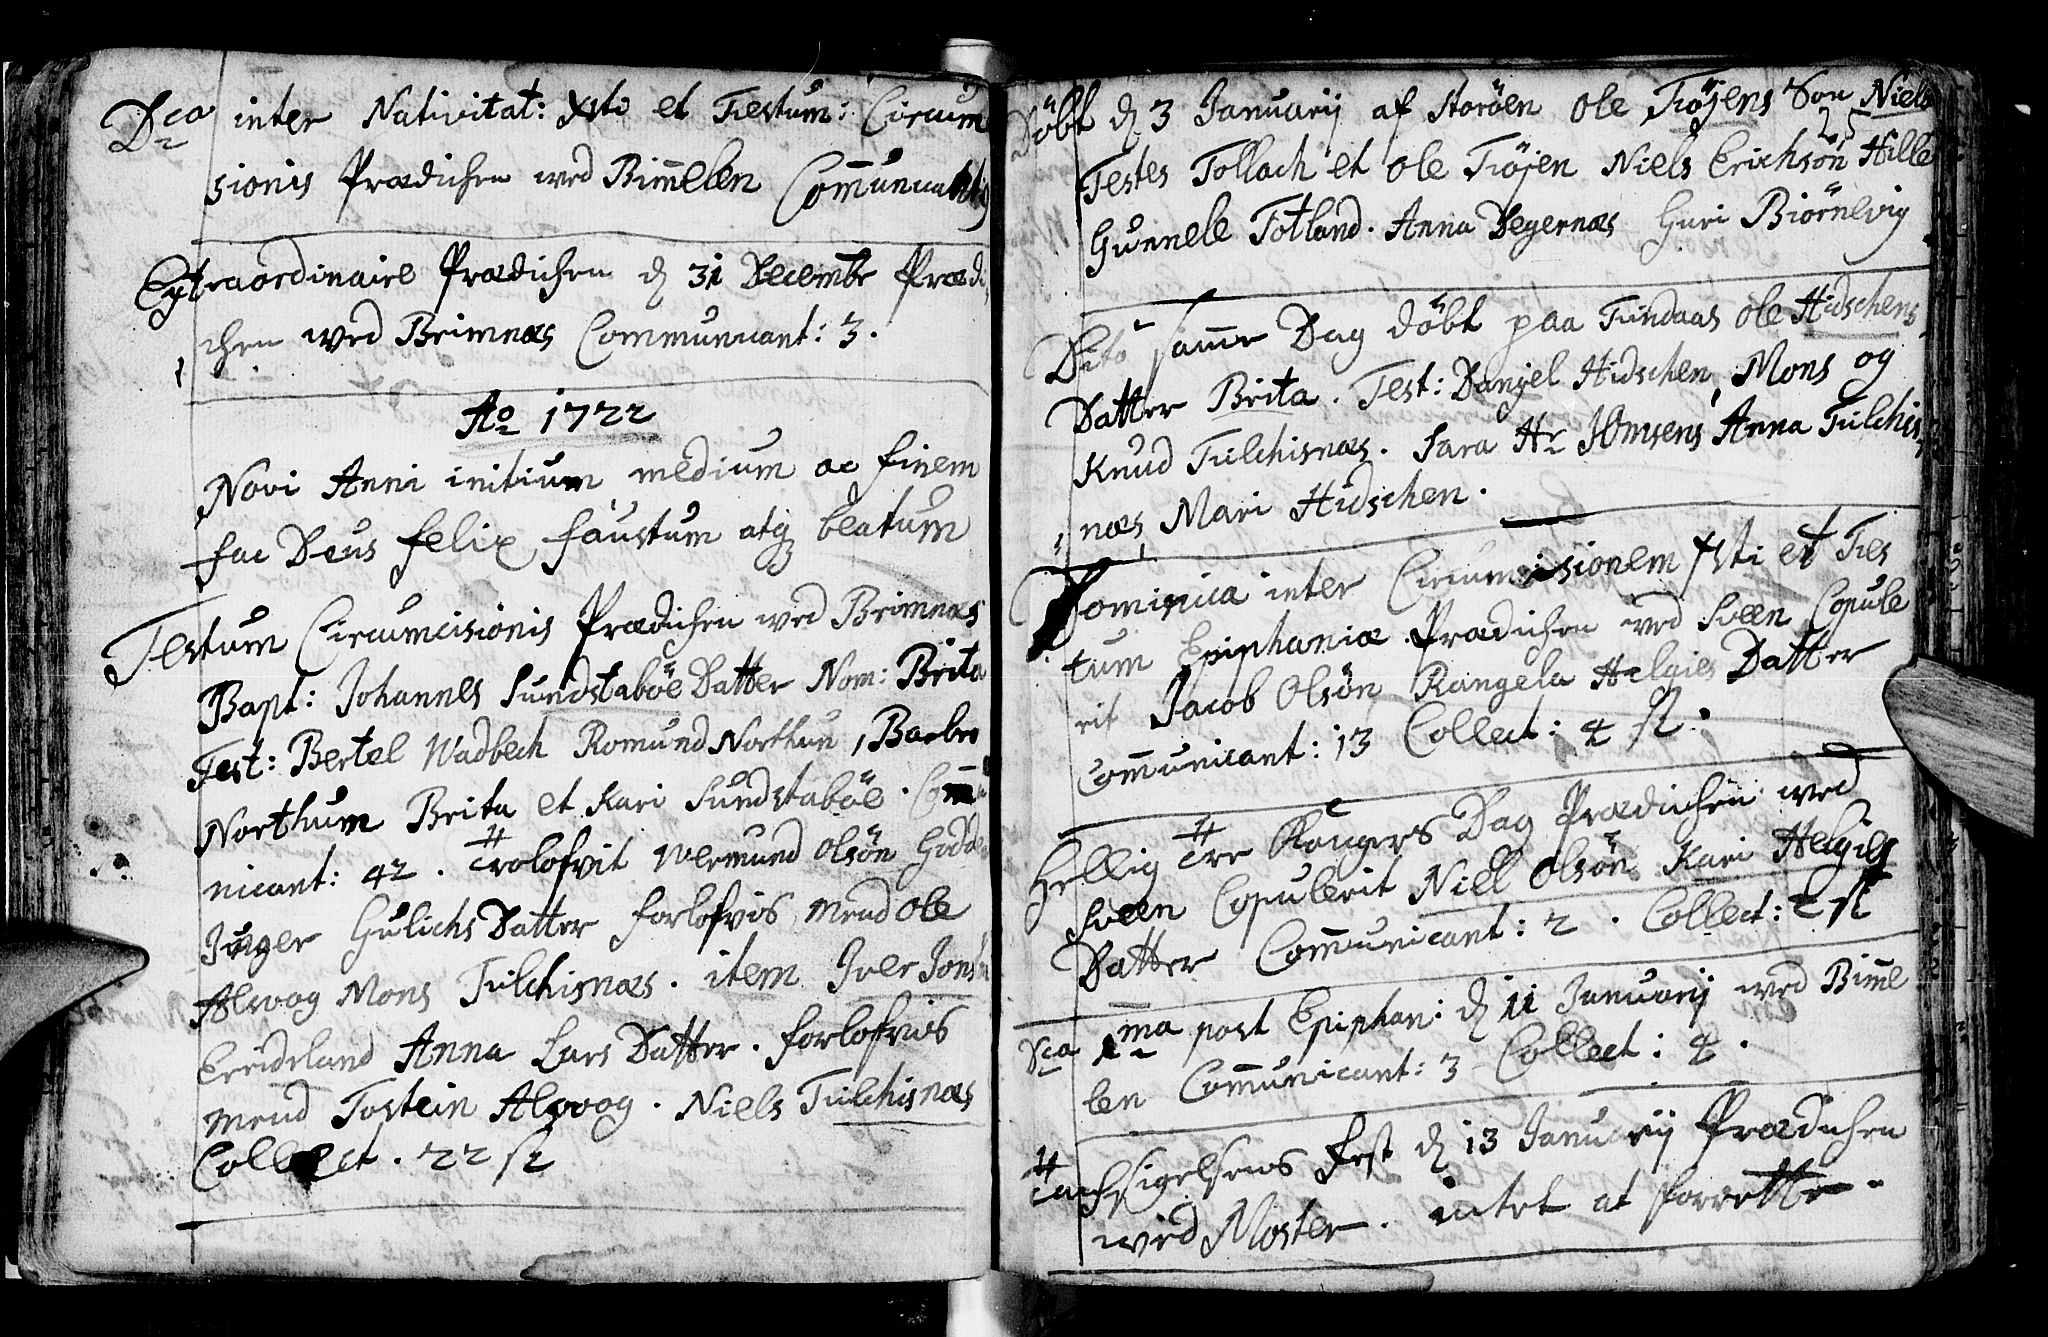 Dca inter Nativitat: Xsti et Festum: Circum
sionis Prædichen wed Bim̄elen Com̄unicant
Extraordinaire Prædichen d 31 Decembr Prædi
chen wed Brimnæs Communicant: 3.
Ao 1722
Novi Anni initium medium ac finem
fac Deus felix, faustum atq beatum
Festum Circumcisionis Prædichen wed Brimnæs
Bapt: Johannes Sundstaböe Datter Nom: Brita
Test: Bertel Wadbech Romund Northun, Barbro
Northum Brita et Kari Sundstaböe. Com̄u
nicant: 42. Trolofvit Wermund Olsön
Inger Gulichs Datter forlofvis Mend Ole
Alvog Mons Filchisnæs. item Iver Jons
Erridsland Anna Lars Datter. forlofvis
mend Tostein Alvog. Niels Filchisnæs
Collect. 22 s
Döbt d 3 Januarij af Storöen Ole Fiöjens Son Niels
25
Testes Tollach et Ole Fiöjen Niels Erichsön Hille
Gunnele Totland. Anna Degernæs Guri Biörnevig
Dito sam̄e Dag döbt paa Findaas Ole Hidschens
Datter Brita. Test: Danjel Hidschen, Mons og
Knud Filchisnæs. Sara Hr Jonsens Anna Filchis
næs, Mari Hidschen.
Dominica inter Circumcisionem Xsti et Fes
tum Epiphaniæ Prædichen wed Sveen Copule
rit Jacob Olsön Rangela Helgies Datter
Com̄unicant: 13 Collect: 4 s.
Hellig Tre Kongers Dag Prædichen wed
Sveen Copulerit Niels Olsön Kari Helgies
Datter Com̄unicant: 2. Collect: 2 s
Dca 1ma post Epiphan: d 11 Januarij wed Bim̄e
len Com̄unicant: 3 Collect: 4.
Tachsigelsens Fest d 13 Januarij Prædichen
wed Moster. intet at forrette.